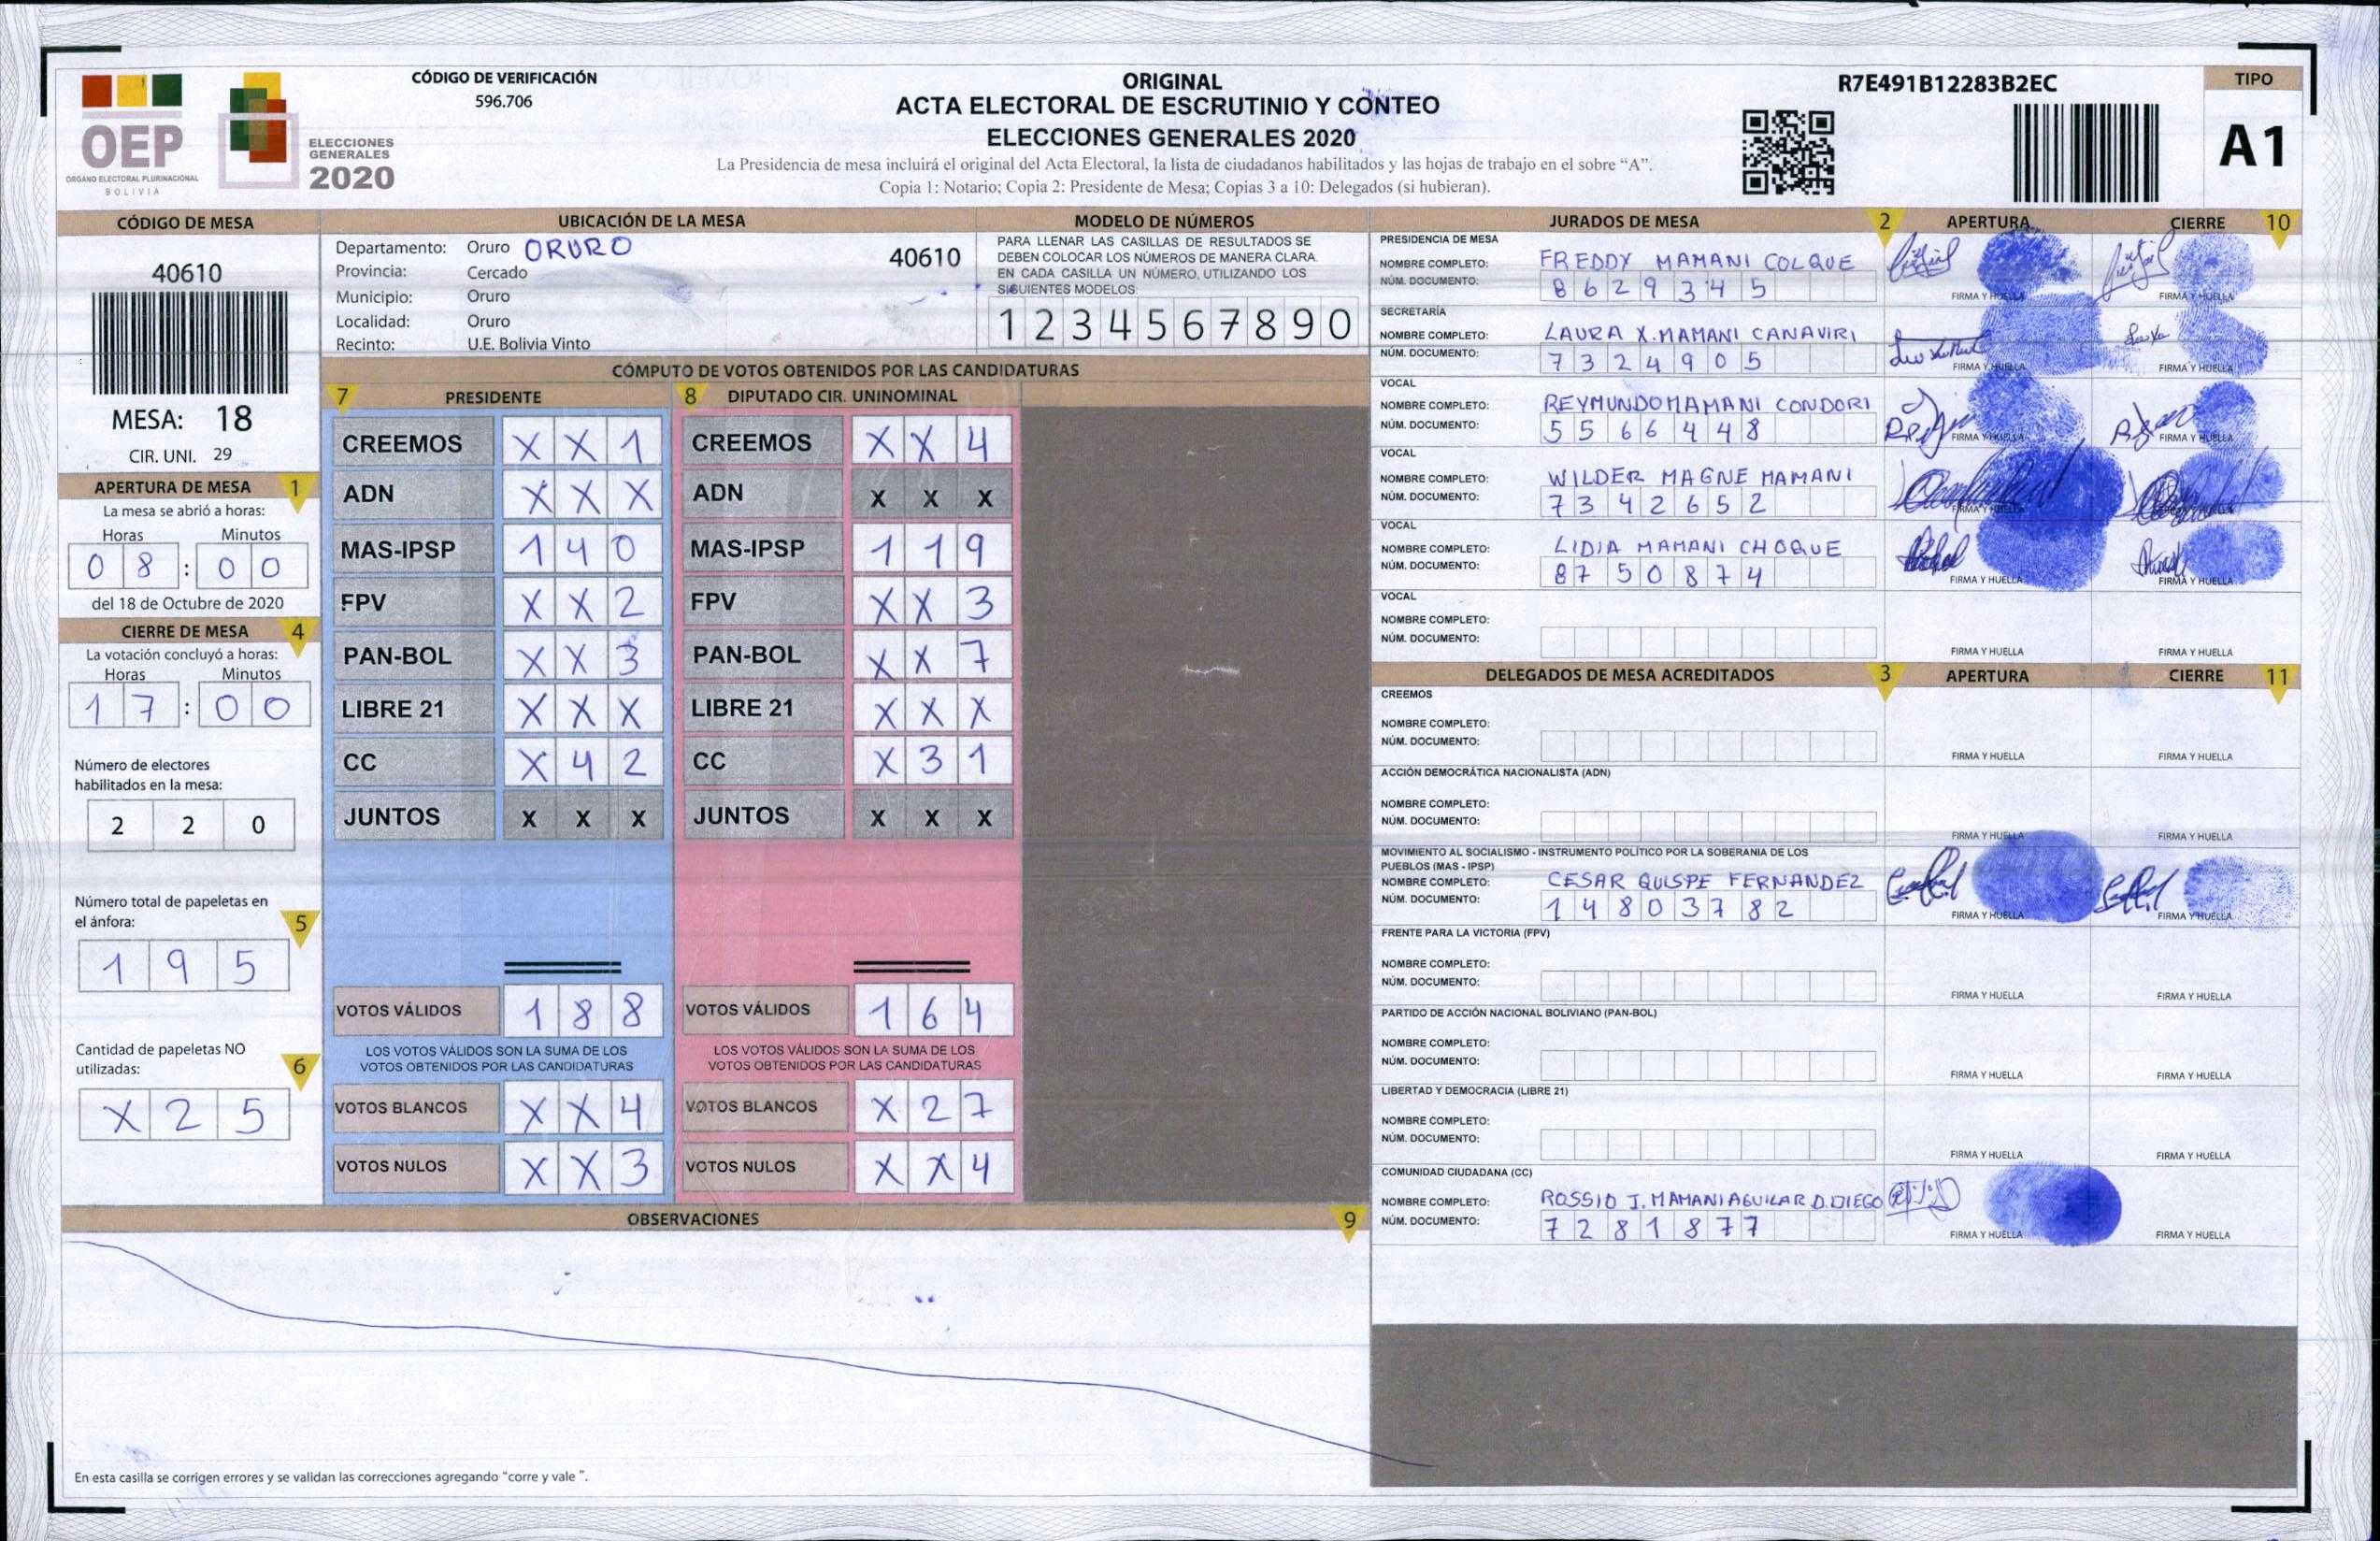 OEP
ÓRGANO ELECTORAL PLURINACIONAL
BOLIVIA
ELECCIONES
GENERALES
2020
CÓDIGO DE VERIFICACIÓN
596.706
ORIGINAL
ACTA ELECTORAL DE ESCRUTINIO Y CONTEO
ELECCIONES GENERALES 2020
La Presidencia de mesa incluirá el original del Acta Electoral, la lista de ciudadanos habilitados y las hojas de trabajo en el sobre “A”.
Copia 1: Notario; Copia 2: Presidente de Mesa; Copias 3 a 10: Delegados (si hubieran).
R7E491B12283B2EC
TIPO
A1
CÓDIGO DE MESA
40610
MESA: 18
CIR. UNI. 29
UBICACIÓN DE LA MESA
Departamento: Oruro ORURO 40610
Provincia: Cercado
Municipio: Oruro
Localidad: Oruro
Recinto: U.E. Bolivia Vinto
MODELO DE NÚMEROS
PARA LLENAR LAS CASILLAS DE RESULTADOS SE
DEBEN COLOCAR LOS NÚMEROS DE MANERA CLARA
EN CADA CASILLA UN NÚMERO, UTILIZANDO LOS
SIGUIENTES MODELOS:
1 2 3 4 5 6 7 8 9 0
APERTURA DE MESA 1
La mesa se abrió a horas:
Horas Minutos
0 8 : 0 0
del 18 de Octubre de 2020
CIERRE DE MESA 4
La votación concluyó a horas:
Horas Minutos
1 7 : 0 0
Número de electores
habilitados en la mesa:
2 2 0
Número total de papeletas en
el ánfora: 5
1 9 5
Cantidad de papeletas NO
utilizadas: 6
X 2 5
CÓMPUTO DE VOTOS OBTENIDOS POR LAS CANDIDATURAS
7 PRESIDENTE
CREEMOS X X 1
ADN X X X
MAS-IPSP 1 4 0
FPV X X 2
PAN-BOL X X 3
LIBRE 21 X X X
CC X 4 2
JUNTOS X X X
VOTOS VÁLIDOS 1 8 8
LOS VOTOS VÁLIDOS SON LA SUMA DE LOS
VOTOS OBTENIDOS POR LAS CANDIDATURAS
VOTOS BLANCOS X X 4
VOTOS NULOS X X 3
8 DIPUTADO CIR. UNINOMINAL
CREEMOS X X 4
ADN X X X
MAS-IPSP 1 1 9
FPV X X 3
PAN-BOL X X 7
LIBRE 21 X X X
CC X 3 1
JUNTOS X X X
VOTOS VÁLIDOS 1 6 4
LOS VOTOS VÁLIDOS SON LA SUMA DE LOS
VOTOS OBTENIDOS POR LAS CANDIDATURAS
VOTOS BLANCOS X 2 7
VOTOS NULOS X X 4
OBSERVACIONES 9
En esta casilla se corrigen errores y se validan las correcciones agregando “corre y vale ”.
JURADOS DE MESA 2 APERTURA CIERRE 10
PRESIDENCIA DE MESA
NOMBRE COMPLETO: FREDDY MAMANI COLQUE
NÚM. DOCUMENTO: 8 6 2 9 3 4 5
FIRMA Y HUELLA FIRMA Y HUELLA
SECRETARÍA
NOMBRE COMPLETO: LAURA X. MAMANI CANAVIRI
NÚM. DOCUMENTO: 7 3 2 4 9 0 5
FIRMA Y HUELLA FIRMA Y HUELLA
VOCAL
NOMBRE COMPLETO: REYMUNDO MAMANI CONDORI
NÚM. DOCUMENTO: 5 5 6 6 4 4 8
FIRMA Y HUELLA FIRMA Y HUELLA
VOCAL
NOMBRE COMPLETO: WILDER MAGNE MAMANI
NÚM. DOCUMENTO: 7 3 4 2 6 5 2
FIRMA Y HUELLA FIRMA Y HUELLA
VOCAL
NOMBRE COMPLETO: LIDIA MAMANI CHOQUE
NÚM. DOCUMENTO: 8 7 5 0 8 7 4
FIRMA Y HUELLA FIRMA Y HUELLA
VOCAL
NOMBRE COMPLETO:
NÚM. DOCUMENTO:
FIRMA Y HUELLA FIRMA Y HUELLA
DELEGADOS DE MESA ACREDITADOS 3 APERTURA CIERRE 11
CREEMOS
NOMBRE COMPLETO:
NÚM. DOCUMENTO:
FIRMA Y HUELLA FIRMA Y HUELLA
ACCIÓN DEMOCRÁTICA NACIONALISTA (ADN)
NOMBRE COMPLETO:
NÚM. DOCUMENTO:
FIRMA Y HUELLA FIRMA Y HUELLA
MOVIMIENTO AL SOCIALISMO - INSTRUMENTO POLÍTICO POR LA SOBERANIA DE LOS
PUEBLOS (MAS - IPSP)
NOMBRE COMPLETO: CESAR QUISPE FERNANDEZ
NÚM. DOCUMENTO: 1 4 8 0 3 7 8 2
FIRMA Y HUELLA FIRMA Y HUELLA
FRENTE PARA LA VICTORIA (FPV)
NOMBRE COMPLETO:
NÚM. DOCUMENTO:
FIRMA Y HUELLA FIRMA Y HUELLA
PARTIDO DE ACCIÓN NACIONAL BOLIVIANO (PAN-BOL)
NOMBRE COMPLETO:
NÚM. DOCUMENTO:
FIRMA Y HUELLA FIRMA Y HUELLA
LIBERTAD Y DEMOCRACIA (LIBRE 21)
NOMBRE COMPLETO:
NÚM. DOCUMENTO:
FIRMA Y HUELLA FIRMA Y HUELLA
COMUNIDAD CIUDADANA (CC)
NOMBRE COMPLETO: ROSSIO J. MAMANI AGUILAR D. DIEGO
NÚM. DOCUMENTO: 7 2 8 1 8 7 7
FIRMA Y HUELLA FIRMA Y HUELLA